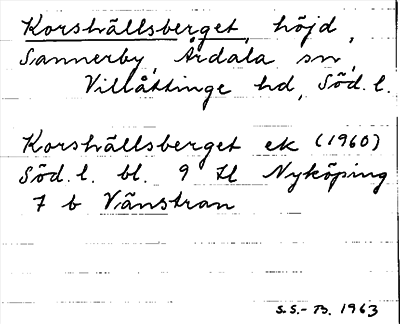 Korshällsberget, höjd,
Sannerby, Årdala sn,
Villåttinge hd, Söd. l.
Korshällsberget ek (1960)
Söd. l. bl. 9 H Nyköping
7 b Vänstran
S.S.-B. 1963